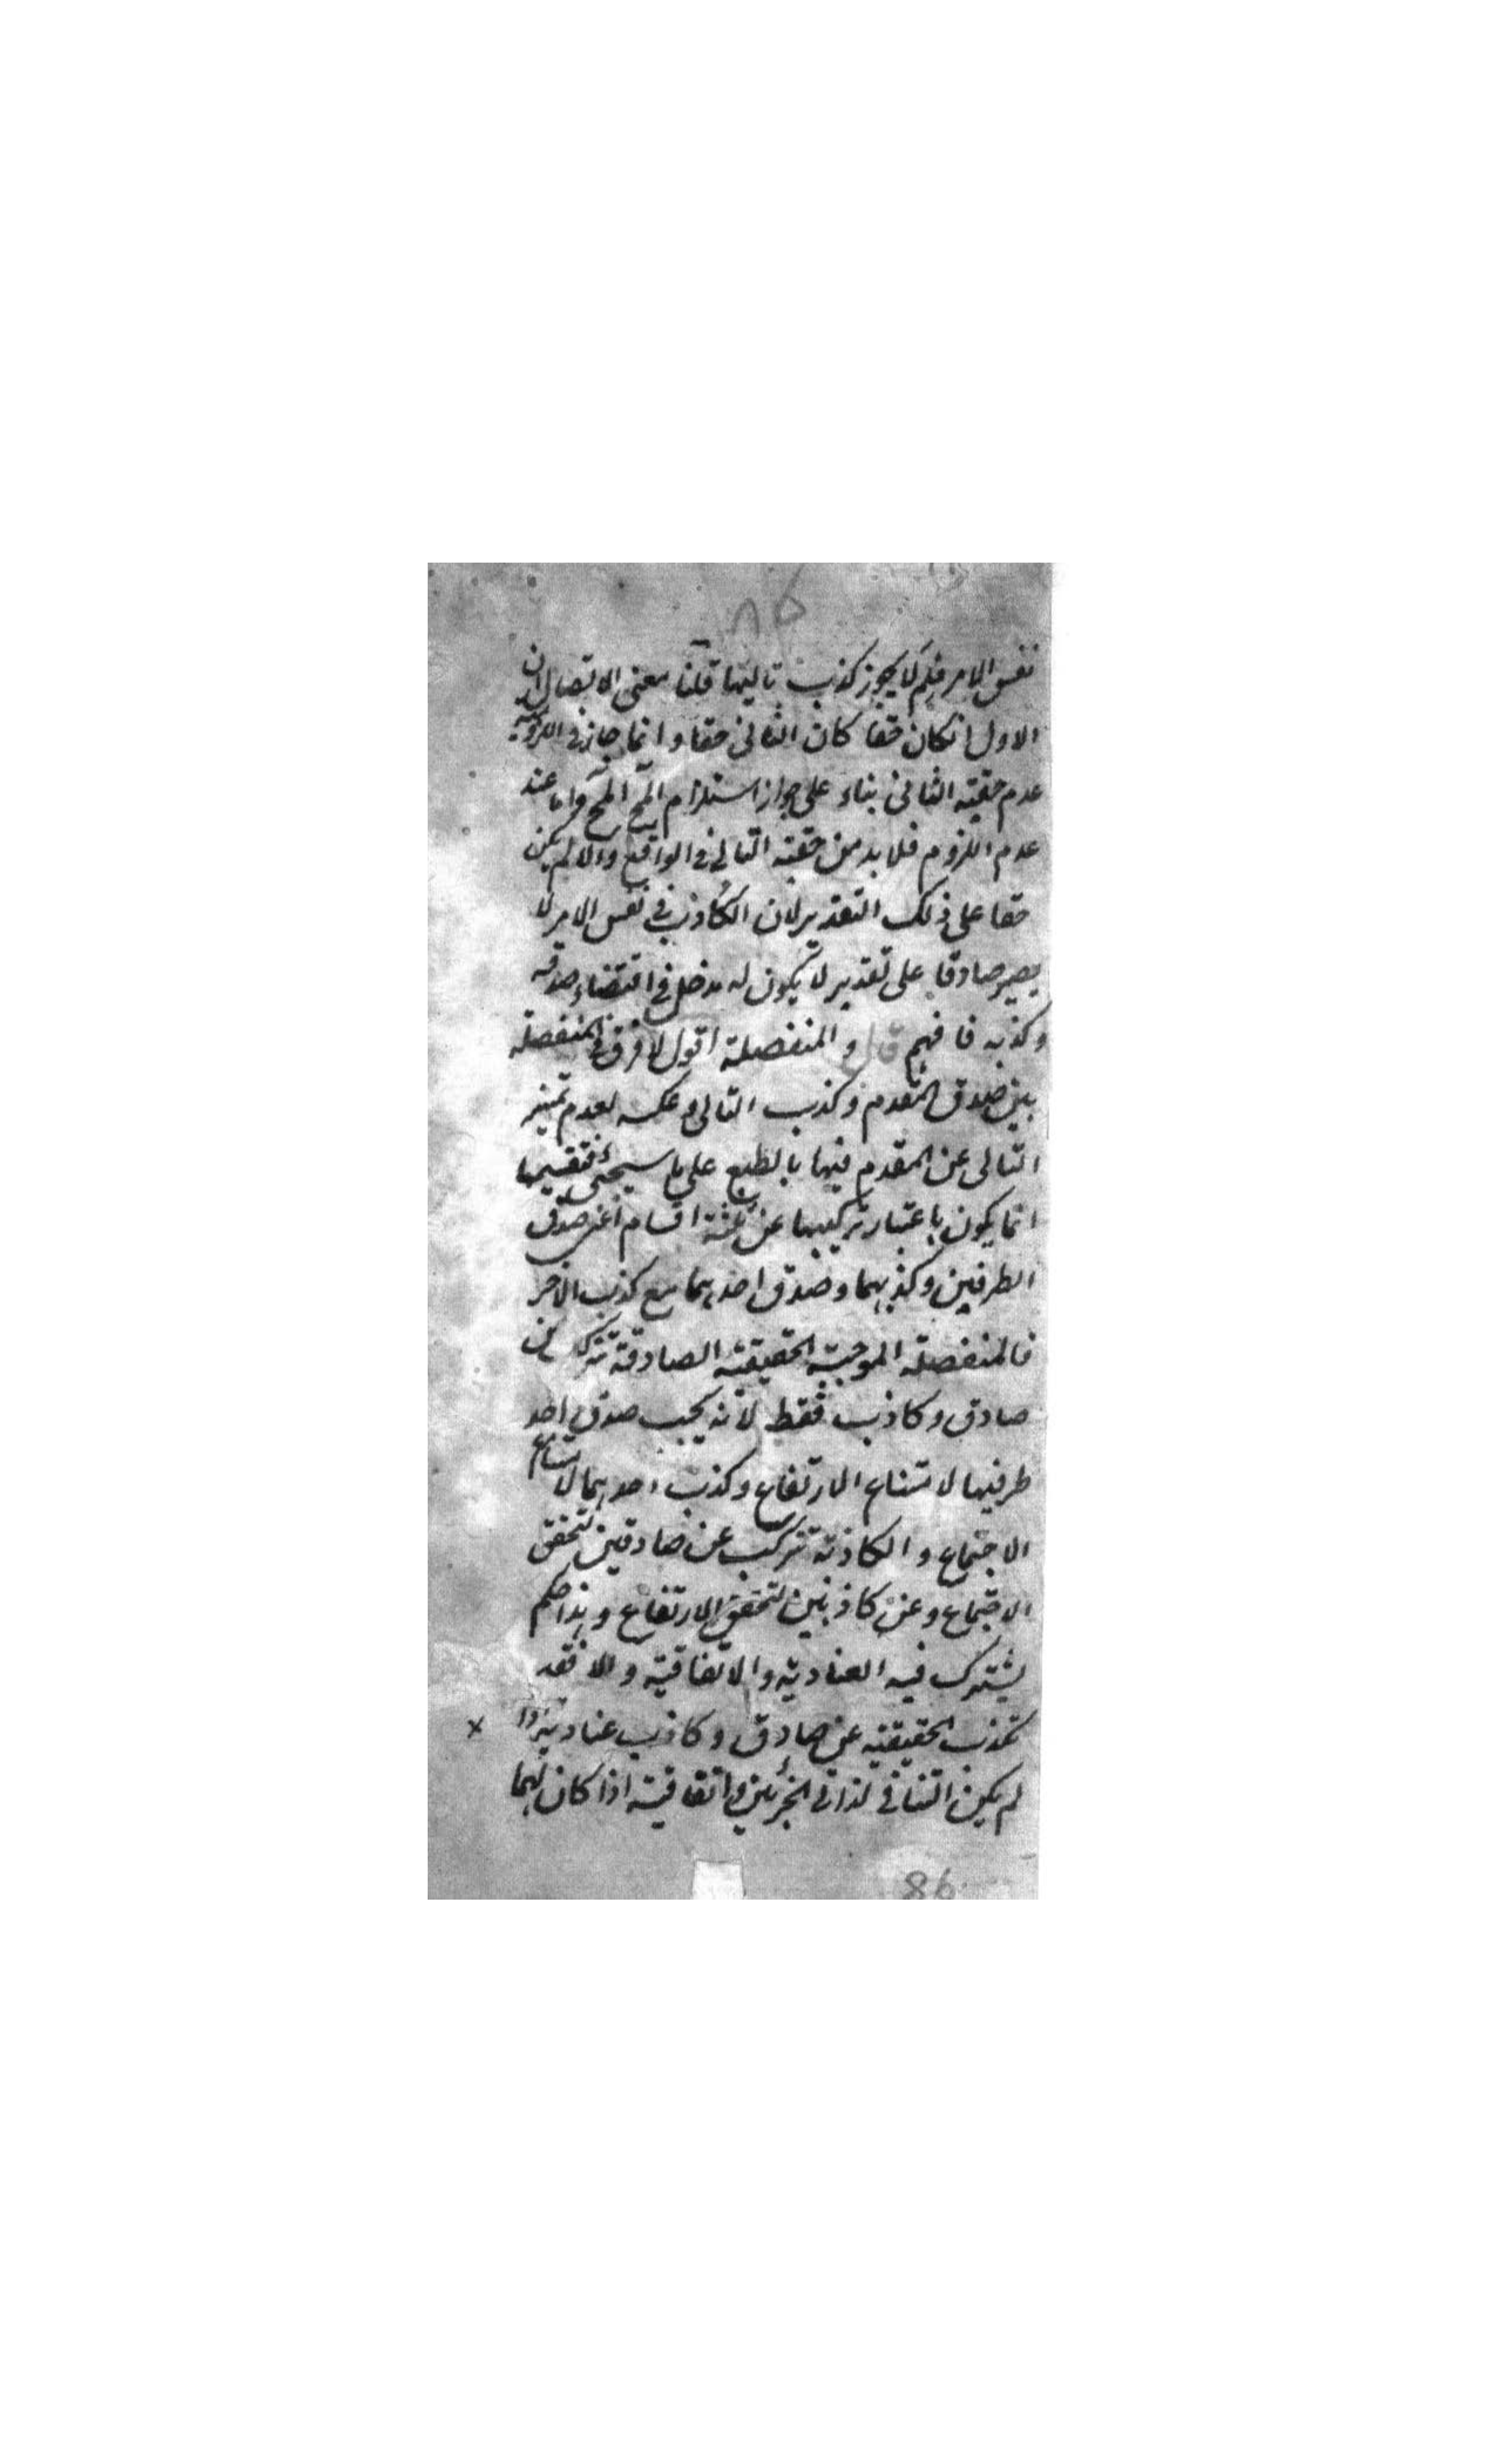 ٨٥
نفس الامر فلم لا يجوز كذب تاليها قلنا معنى الاتصال ان
الاول ان كان حقا كان الثانى حقا وانما جاز فى اللزومية
عدم حقية الثانى بناء على جواز استلزام المح المح واما عند
عدم اللزوم فلا بد من حقية التالى فى الواقع والا لم يكن
حقا على ذلك التقدير لان الكاذب فى نفس الامر لا
يصير صادقا على تقدير لا يكون له مدخل فى اقتضاء صدقه
وكذبه فافهم قال والمنفصلة اقول لا فرق فى المنفصلة
بين صدق المقدم وكذب التالى وعكسه لعدم تميز
التالى عن المقدم فيها بالطبع على ما سيجئ فتقسيمها
انما يكون باعتبار تركيبها عن ثلثة اقسام اعنى صدق
الطرفين وكذبهما وصدق احدهما مع كذب الاخر
فالمنفصلة الموجبة الحقيقية الصادقة تتركب عن
صادق وكاذب فقط لانه يجب صدق احد
طرفيها لامتناع الارتفاع وكذب احدهما لامتناع
الاجتماع والكاذبة تتركب عن صادقين لتحقق
الاجتماع وعن كاذبين لتحقق الارتفاع وهذا حكم
يشترك فيه العنادية والاتفاقية والا فقد
تكذب الحقيقية عن صادق وكاذب عنادية اذا
لم يكن التنافى لذاتى الجزئين واتفاقية اذا كان لهما
86